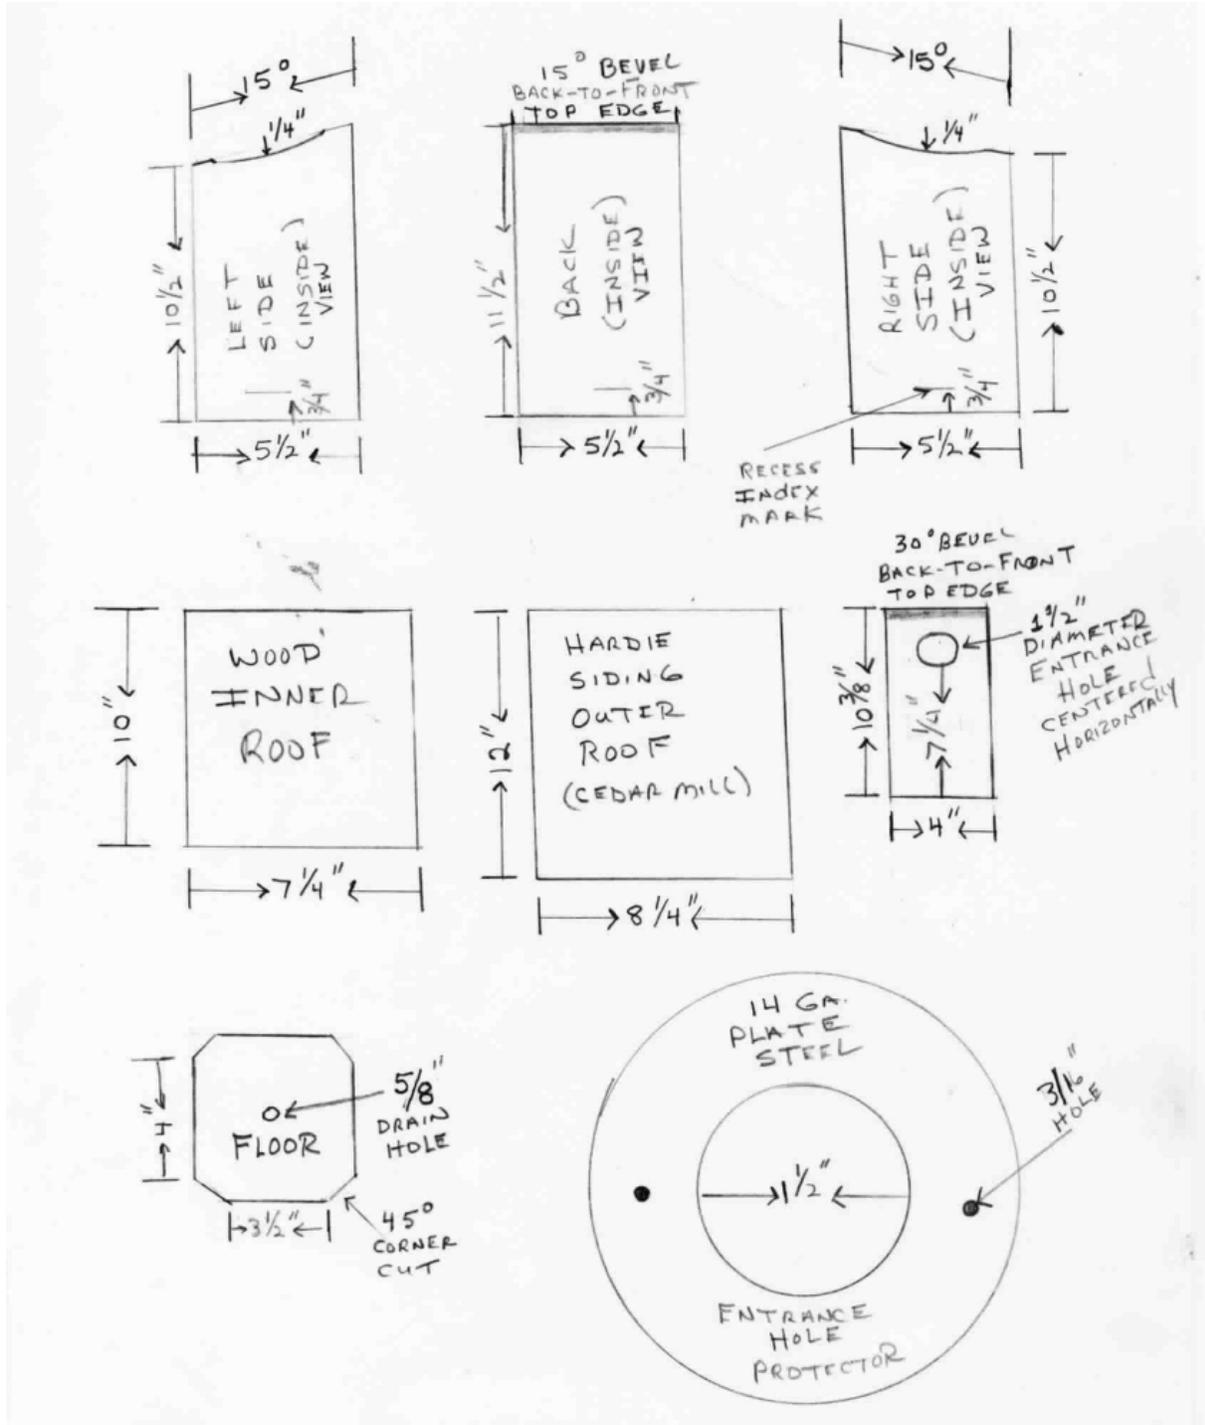 15°
1/4"
10 1/2"
LEFT
SIDE
(INSIDE)
VIEW
3/4"
5 1/2"
15° BEVEL
BACK-TO-FRONT
TOP EDGE
11 1/2"
BACK
(INSIDE)
VIEW
3/4"
5 1/2"
15°
1/4"
RIGHT
SIDE
(INSIDE)
VIEW
10 1/2"
3/4"
5 1/2"
RECESS
INDEX
MARK
WOOD
INNER
ROOF
10"
7 1/4"
HARDIE
SIDING
OUTER
ROOF
(CEDAR MILL)
12"
8 1/4"
30° BEVEL
BACK-TO-FRONT
TOP EDGE
1 1/2"
DIAMETER
ENTRANCE
HOLE
CENTERED
HORIZONTALLY
10 3/8"
7 1/4"
4"
4"
5/8"
DRAIN
HOLE
FLOOR
3 1/2"
45°
CORNER
CUT
14 GA.
PLATE
STEEL
3/16"
HOLE
1 1/2"
ENTRANCE
HOLE
PROTECTOR